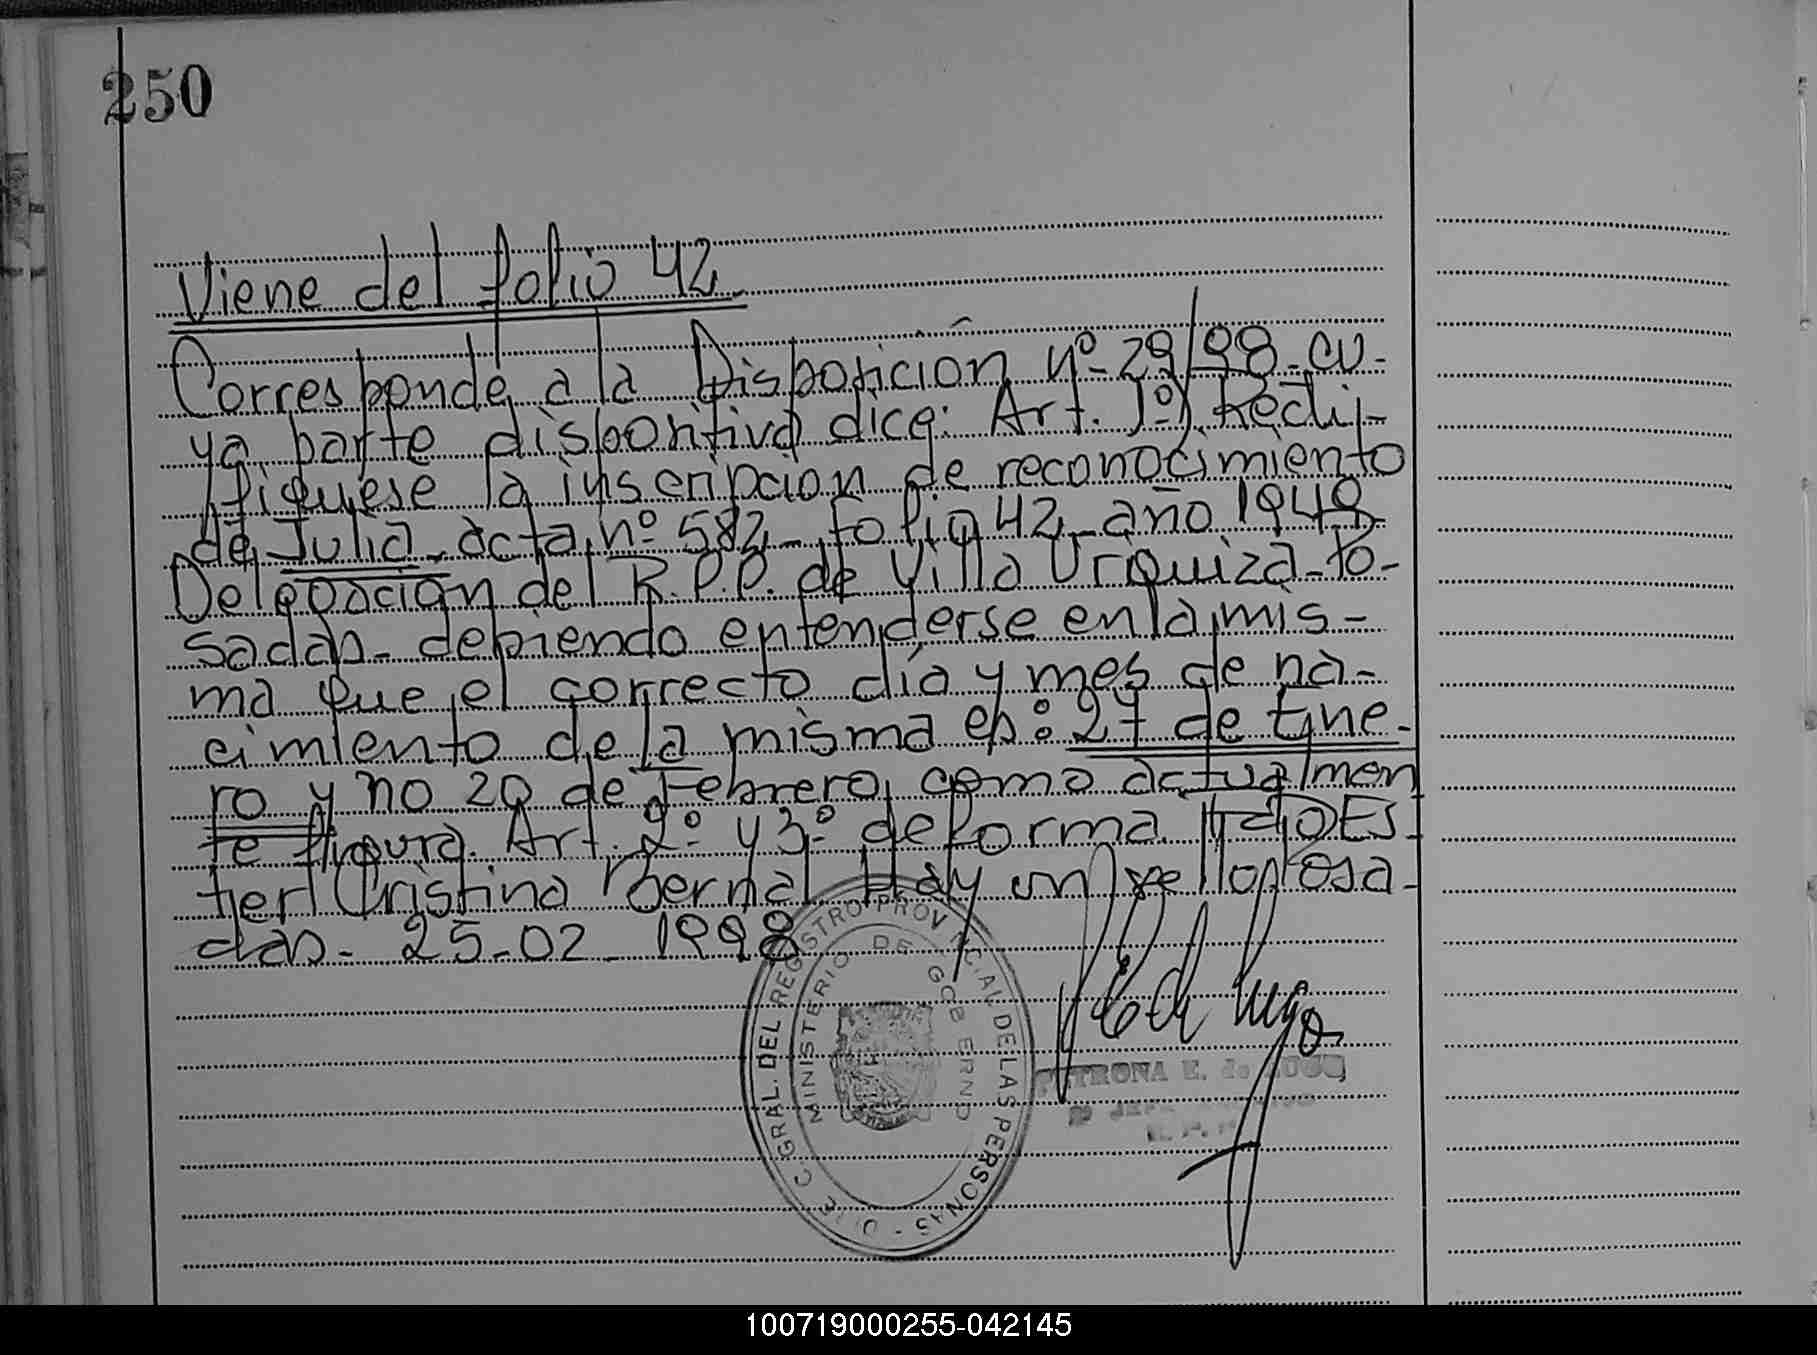 250
Viene del folio 42.
Corresponde a la Disposición nº 29/98. cu-
ya parte dispositiva dice: Art. 1º) Recti-
fiquese la inscripcion de reconocimiento
de Julia. acta nº 582 - folio 42 - año 1949
Delegación del R.P.P. de Villa Urquiza - Po-
sadas. debiendo entenderse en la mis-
ma que el correcto día y mes de na-
cimiento de la misma es: 27 de Ene-
ro y no 20 de Febrero, como actualmen
te figura. Art. 2º y 3º de forma. Es-
ter Cristina Bernal. Hay un sello Posa-
das. 25-02-1998
C. GRAL. DEL REGISTRO PROVINCIAL DE LAS PERSONAS
MINISTERIO DE GOBIERNO
PETRONA E. de LUGO
100719000255-042145